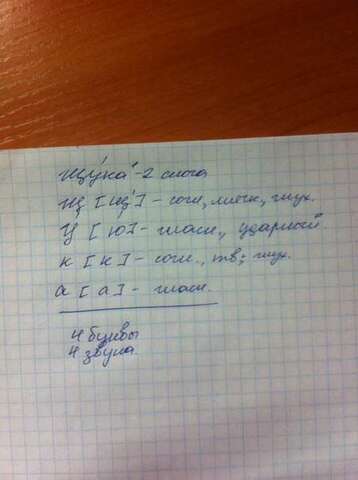 щу́ка - 2 слога
щ [щ'] - согл., мягк., глух.
у [ю] - гласн., ударный
к [к] - согл., тв., глух.
а [а] - гласн.
4 буквы
4 звука.